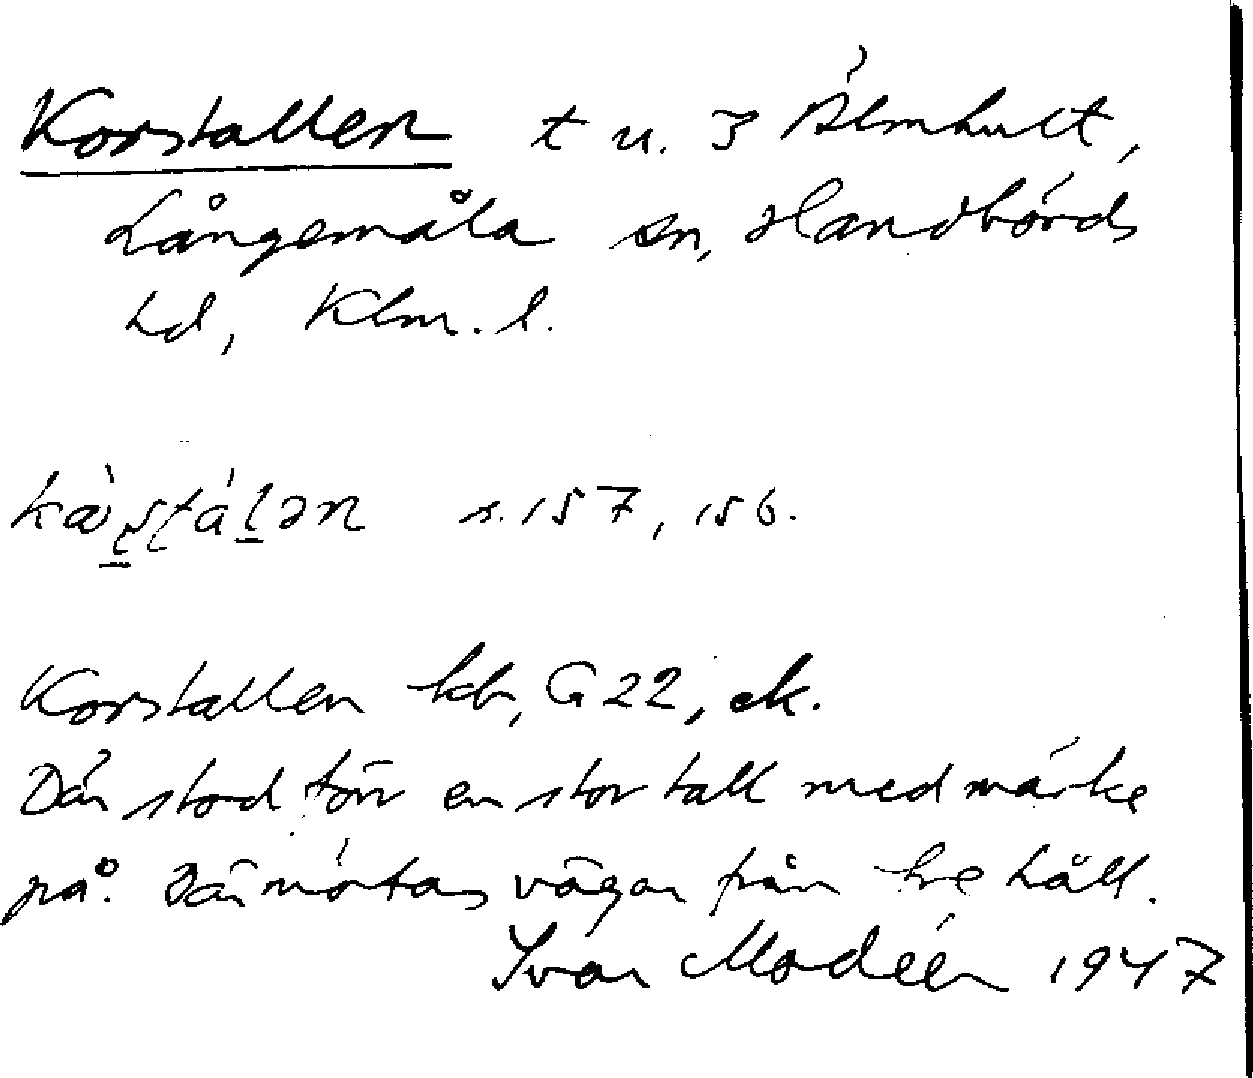 Korstallen t u. 3 Älmhult,
Långemåla sn, Handbörds
hd, Klm. l.
s. 157, 156.
Korstallen kb, G 22, ek.
Där stod förr en stor tall med märke
på. Där mötas vägar från tre håll.
Ivar Modéer 1947